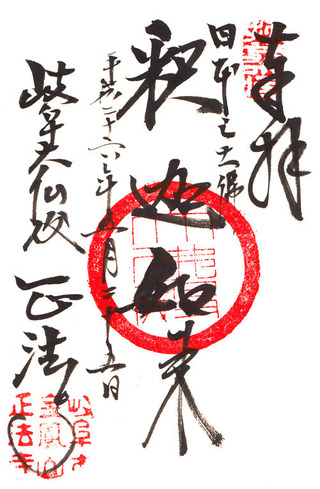 奉拝
日本三大佛
釈迦如来
平成二十六年五月二十五日
岐阜大仏殿 正法寺
岐阜市
金鳳山
正法寺